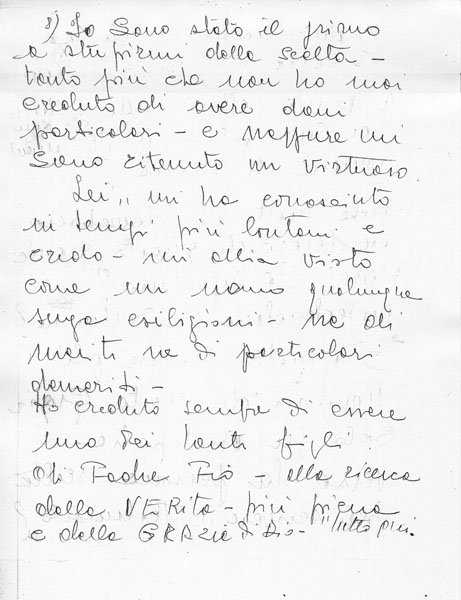 8) Io sono stato il primo
a stupirmi della scelta -
tanto più che non ho mai
creduto di avere doni
particolari - e neppure mi
sono ritenuto un virtuoso.
Lei,, mi ha conosciuto
in tempi più lontani e
credo - mi abbia visto
come un uomo qualunque
senza - ne di
meriti ne di particolari
demeriti -
Ho creduto sempre di essere
uno dei tanti figli
di Padre Pio - alla ricerca
della VERità - più piena
e della GRAZIA di Dio -